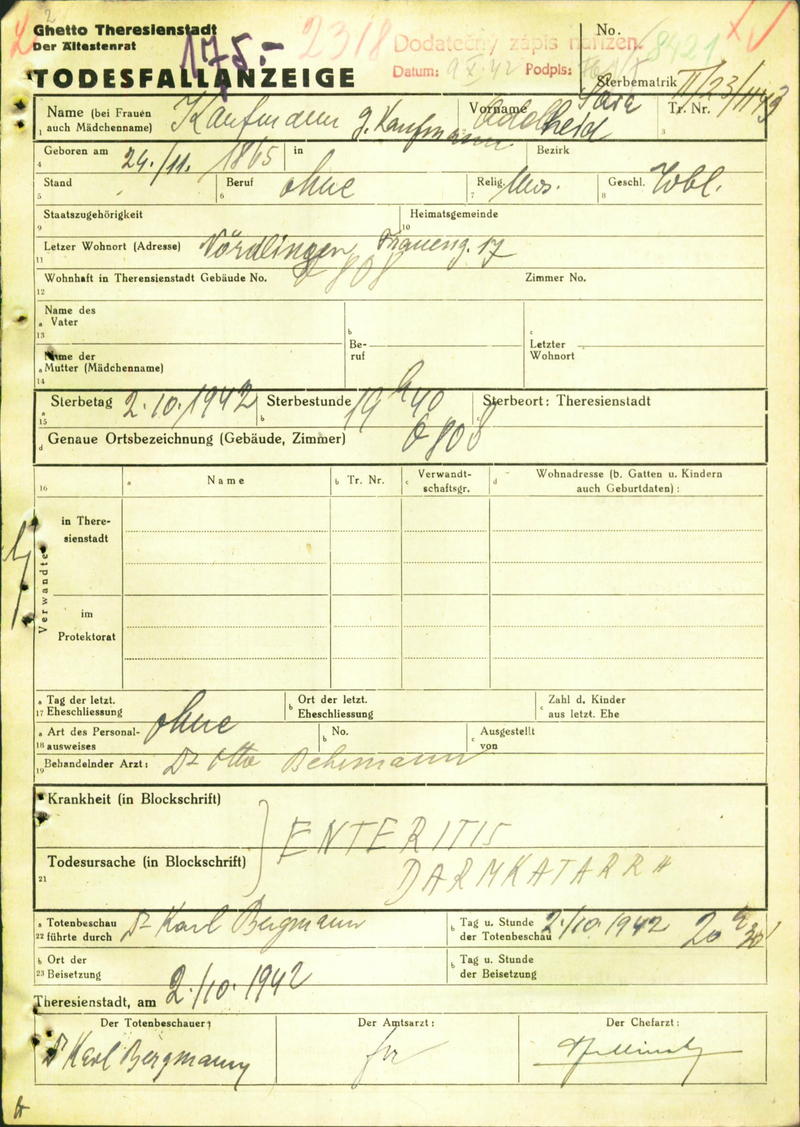 2
Ghetto Theresienstadt
Der Ältestenrat
175.-
2318
Dodatečný zápis nařízen.
8421
Datum: 9 X. 42 Podpis:
No.
TODESFALLANZEIGE
Sterbematrik II/23/1143
Name (bei Frauen auch Mädchenname) Kaufmann g. Kaufmann
Vorname Adelheid Sara
Tr. Nr.
1
3
4 Geboren am 24./11. 1865 in
Bezirk
5 Stand
6 Beruf ohne
7 Relig. Mos.
8 Geschl. Wbl.
9 Staatszugehörigkeit
10 Heimatsgemeinde
11 Letzer Wohnort (Adresse) Nördlingen, Fraueng. 17
12 Wohnhaft in Therensienstadt Gebäude No. Q 808
Zimmer No.
Name des
a Vater
13
b
Be-
ruf
c
Letzter
Wohnort
Name der
a Mutter (Mädchenname)
14
a Sterbetag 2.10.1942
15
b Sterbestunde 19 h 40
c Sterbeort: Theresienstadt
d Genaue Ortsbezeichnung (Gebäude, Zimmer) Q 808
16
a Name
b Tr. Nr.
c Verwandt-
schaftsgr.
d Wohnadresse (b. Gatten u. Kindern
auch Geburtdaten):
Verwandte
in There-
sienstadt
im
Protektorat
a Tag der letzt.
17 Eheschliessung
b Ort der letzt.
Eheschliessung
c Zahl d. Kinder
aus letzt. Ehe
a Art des Personal-
18 ausweises ohne
b No.
c Ausgestellt
von
19 Behandelnder Arzt: Dr Otto
Krankheit (in Blockschrift)
ENTERITIS
Todesursache (in Blockschrift)
DARMKATARRH
21
a Totenbeschau
22 führte durch Dr Karl Bergmann
b Tag u. Stunde
der Totenbeschau 2./10.1942 20 h 30'
b Ort der
23 Beisetzung
b Tag u. Stunde
der Beisetzung
Theresienstadt, am 2./10.1942
Der Totenbeschauer:
Der Amtsarzt:
Der Chefarzt:
Dr Karl Bergmann